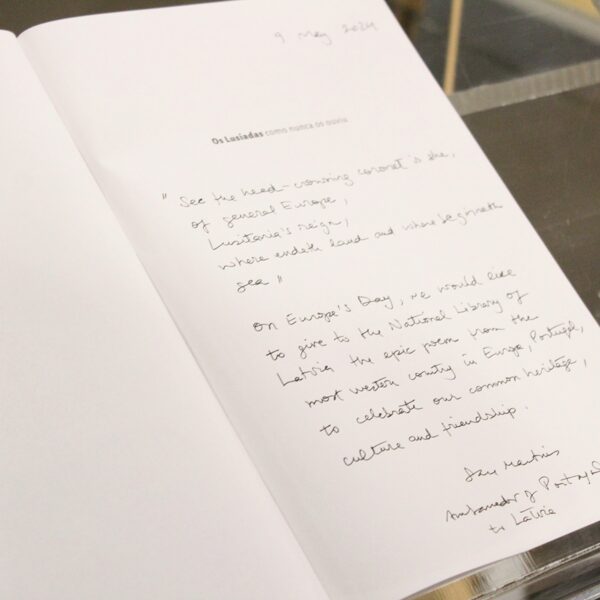 9 May 2024
Os Lusíadas como nunca os ouviu
" See the head-crowning coronet is she,
of general Europe,
Lusitania's reign,
where endeth land and where beginneth
sea "
On Europe's Day, we would like
to give to the National Library of
Latvia the epic poem from the
most western country in Europe, Portugal,
to celebrate our common heritage,
culture and friendship.
Martins
Ambassador of Portugal
to Latvia